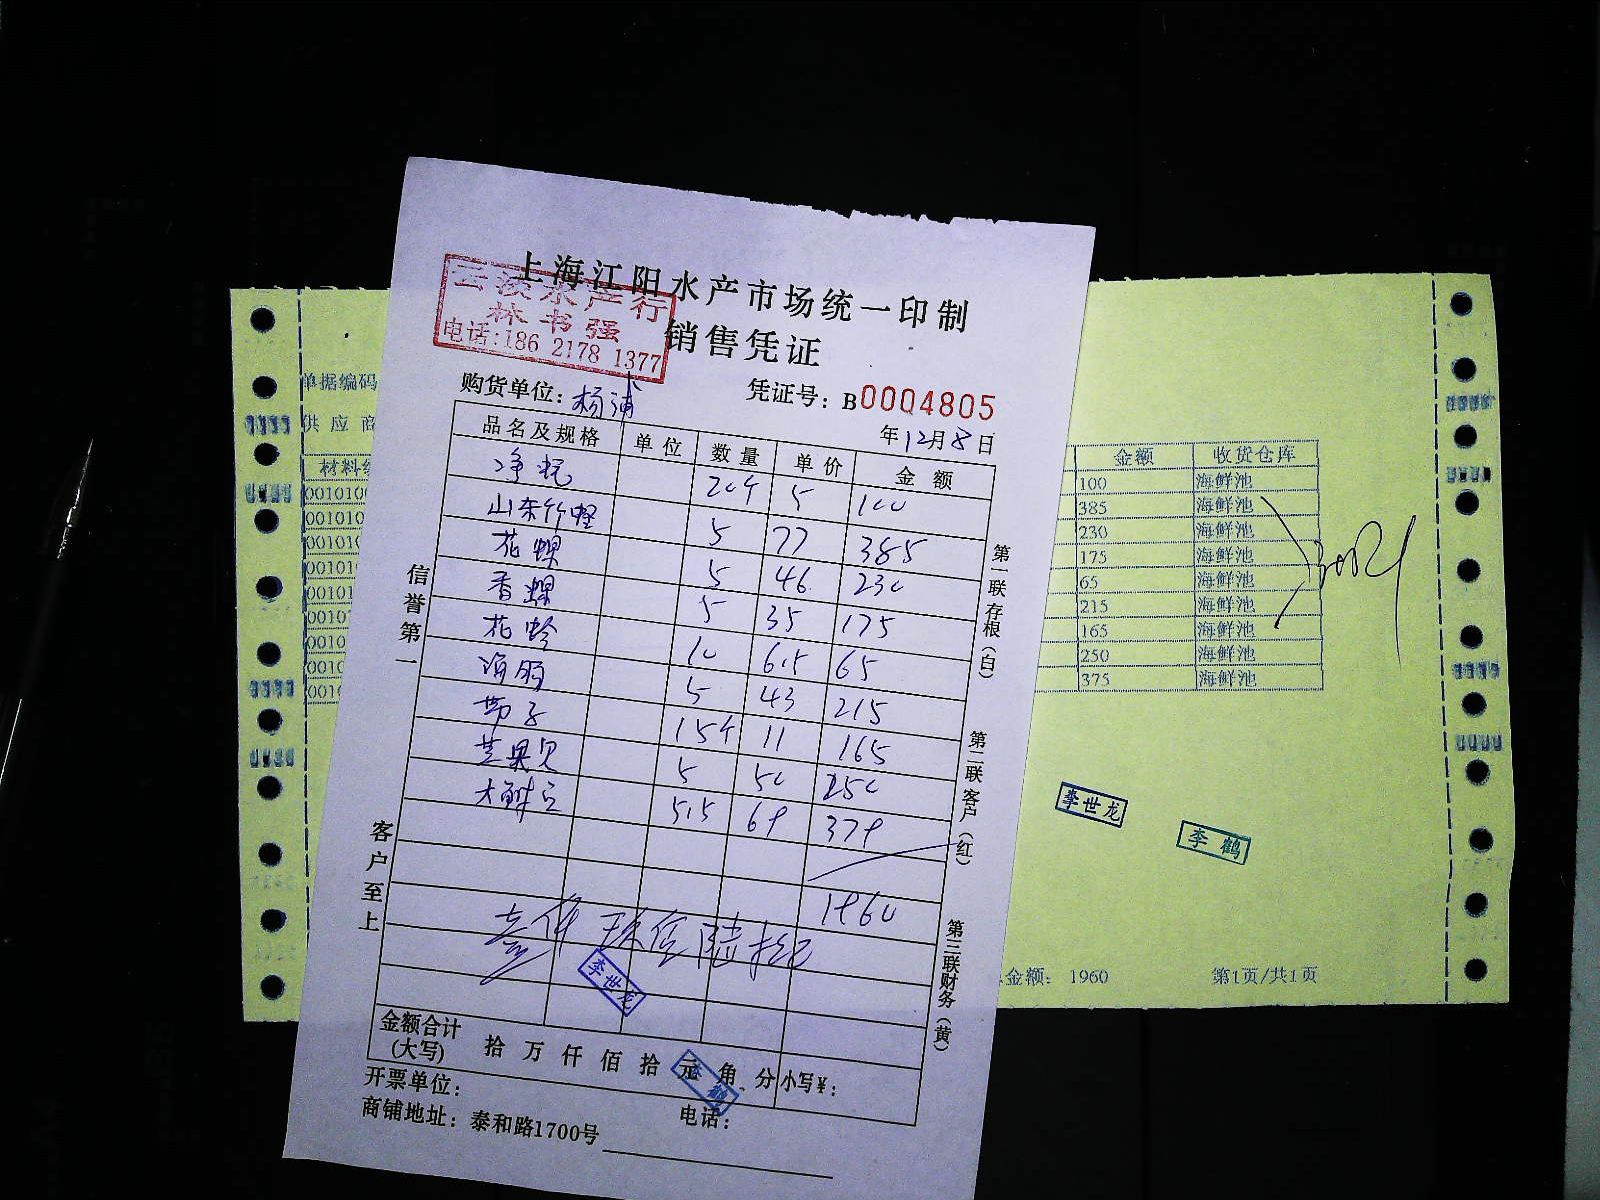 上海江阳水产市场统一印制
云淡水产行
林书强
电话:186 2178 1377
销售凭证
购货单位: 杨浦
凭证号: B0004805
年12月8日
品名及规格 单位 数量 单价 金额
20个 5 100
山东竹蛏 5 77 385
花螺 5 46 230
香螺 5 35 175
花蛤 10 6.5 65
5 43 215
带子 15个 11 165
苹果贝 5 50 250
5.5 69 379
1960
壹仟玖佰陆拾
李世龙
金额合计
(大写)
拾 万 仟 佰 拾 元 角 分 小写¥:
李鹤
开票单位:
电话:
商铺地址: 泰和路1700号
信誉第一
客户至上
第一联存根(白)
第二联客户(红)
第三联财务(黄)
单据编码
供应商
材料
金额 收货仓库
100 海鲜池
385 海鲜池
230 海鲜池
175 海鲜池
65 海鲜池
215 海鲜池
165 海鲜池
250 海鲜池
375 海鲜池
李世龙
李鹤
金额: 1960
第1页/共1页